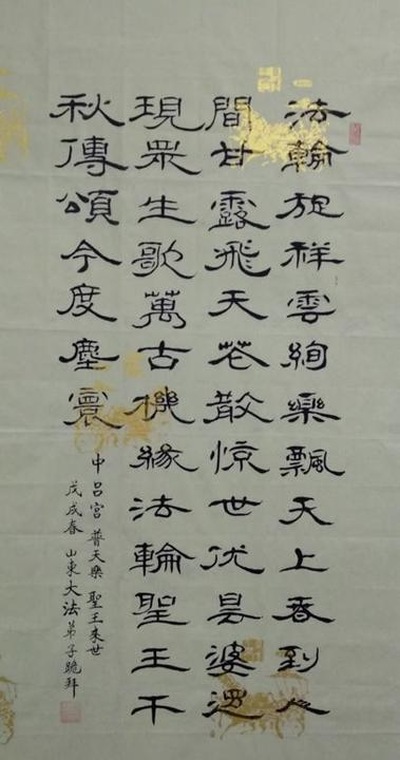 法輪旋祥雲絢樂飄天上香到人
間甘露飛天花散惊世优昙婆逻
現眾生歌萬古機緣法輪聖王不
秋傳頌今度塵寰
中呂宮 普天樂 聖王来世
戊戌春 山東大法弟子跪拜